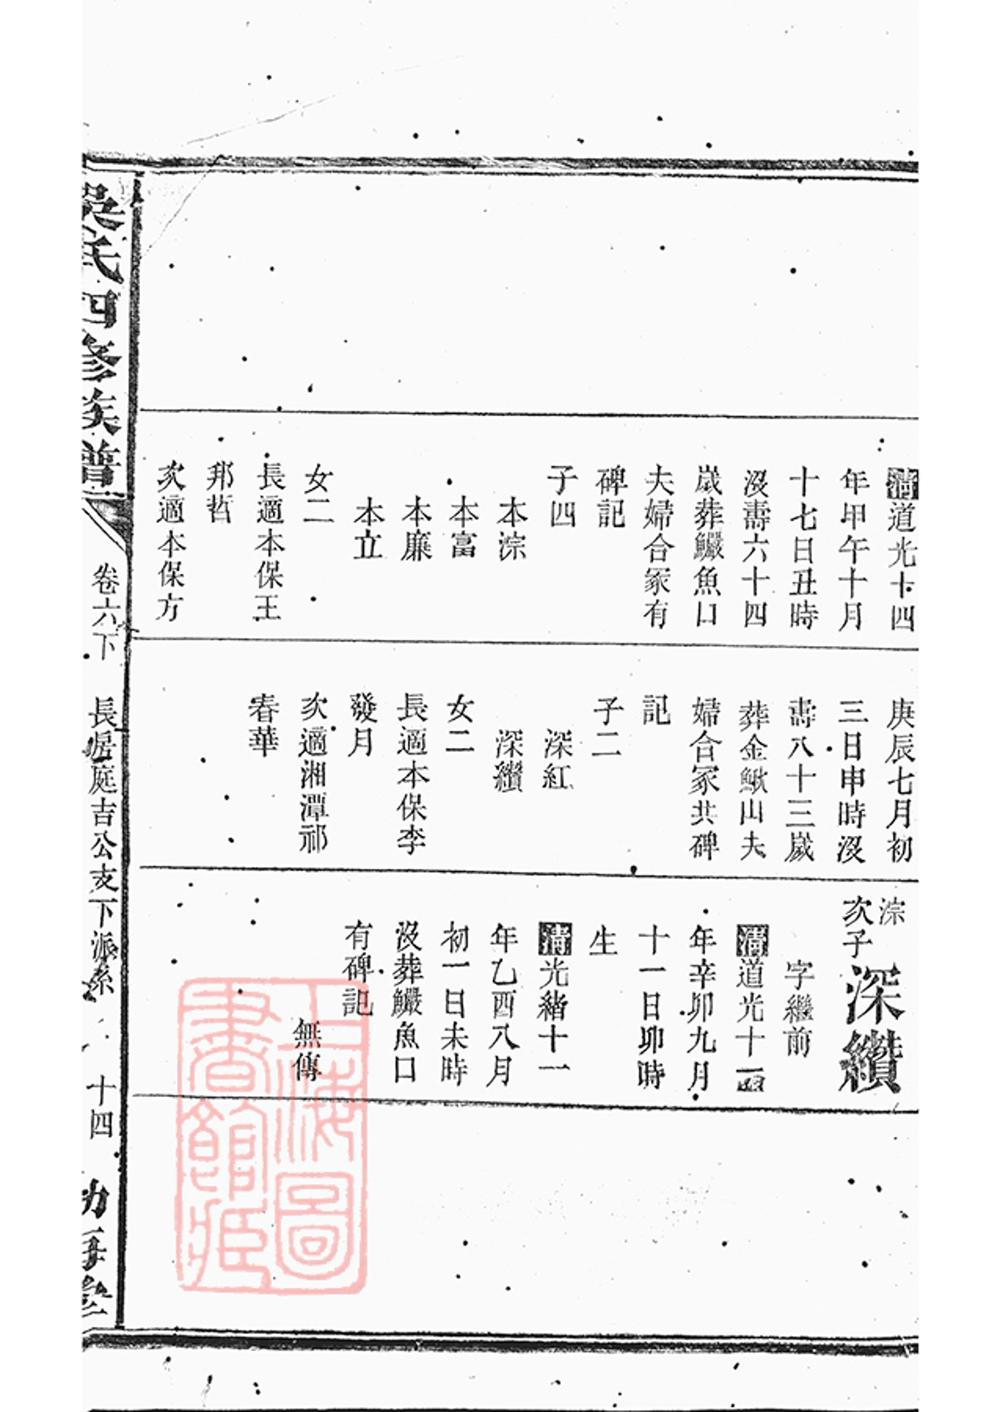 清道光十四
年甲午十月
十七日丑時
沒壽六十四
歲葬鱺魚口
夫婦合冢有
碑記
子四
本淙
本富
本廉
本立
女二
長適本保王
邦哲
次適本保方
庚辰七月初
三日申時沒
壽八十三歲
葬金鰍山夫
婦合冢共碑
記
子二
深紅
深纘
女二
長適本保李
發月
次適湘潭祁
春華
淙
次子
深纘
字繼前
清道光十一
年辛卯九月
十一日卯時
生
清光緒十一
年乙酉八月
初一日未時
沒葬鱺魚口
有碑記
無傳
吳氏四修族譜
卷六下
長房庭吉公支下派系
十四
上海圖書館藏